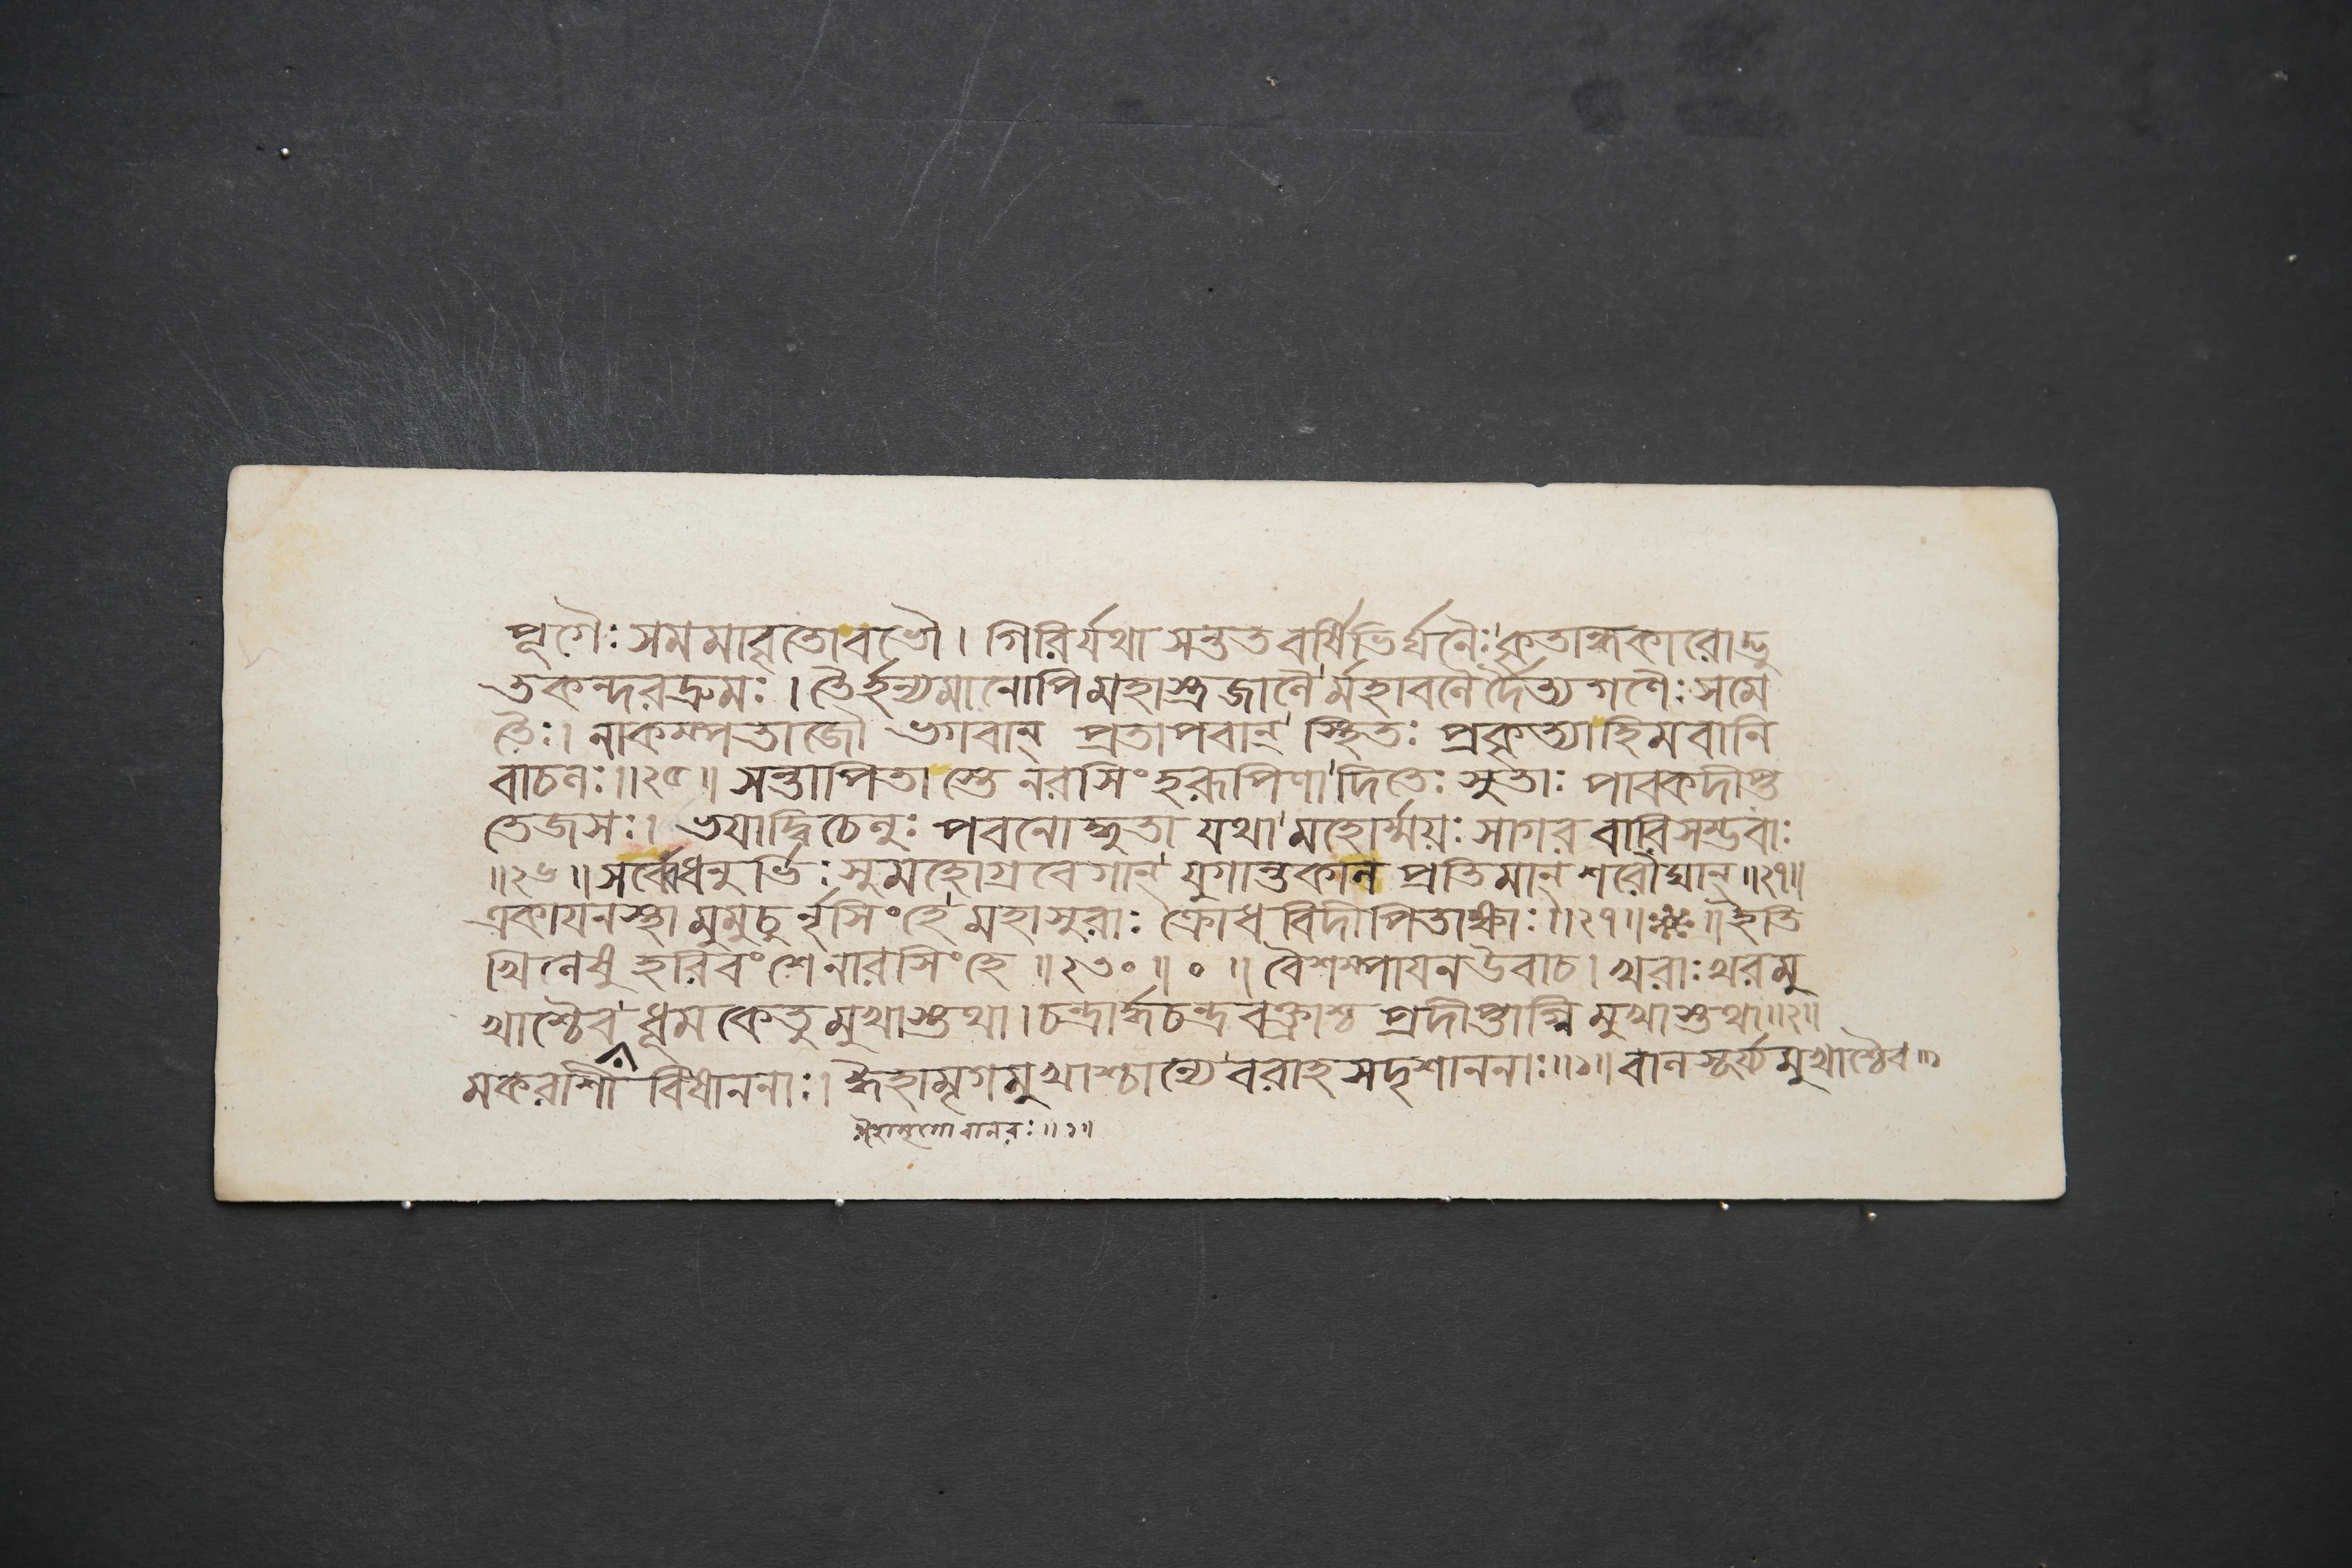 পূগৈঃ সমমাবৃতোবভৌ। গিরির্যথা সন্ততবর্ষিভির্ঘনৈঃ কৃতান্ধকারোদ্ভু
তকন্দরদ্রুমঃ। তৈর্হন্যমানোপিমহাস্ত্রজালৈর্মহাবলৈর্দৈত্যগণৈঃ সমে
তৈঃ। নাকম্পতাজৌ ভগবান্ প্রতাপবান্ স্থিতঃ প্রকৃত্যাহিমবানি
বাচলঃ॥২৫॥ সন্তাপিতাস্তে নরসিংহরূপিণা দিতেঃ সুতাঃ পাবকদীপ্ত
তেজসঃ। ভয়াদ্বিচেলুঃ পবনোদ্ধুতা যথা মহোর্ম্ময়ঃ সাগরবারিসম্ভবাঃ
॥২৬॥ সর্ব্বেধনুর্ভিঃ সুমহোগ্রবেগান্ যুগান্তকাল প্রতিমান্ শরৌঘান্॥২৭॥
একায়নস্থা মুমুচুর্নৃসিংহে মহাসুরাঃ ক্রোধবিদীপিতাঙ্গাঃ॥২৭॥ ॥ ইতি
খিলেষু হরিবংশেনারসিংহে ॥২৩০॥০॥ বৈশম্পায়নউবাচ। খরাঃ খরমু
খাশ্চৈব ধূমকেতুমুখাস্তথা। চন্দ্রার্দ্ধচন্দ্রবক্ত্রাশ্চ প্রদীপ্তাগ্নিমুখাস্তথা॥২॥
মকরাশী বিষাননাঃ। ঈহামৃগমুখাশ্চান্যে বরাহসদৃশাননাঃ॥১॥ বালসূর্য্যমুখাশ্চৈব
ঈহামৃগো বানরঃ॥১॥